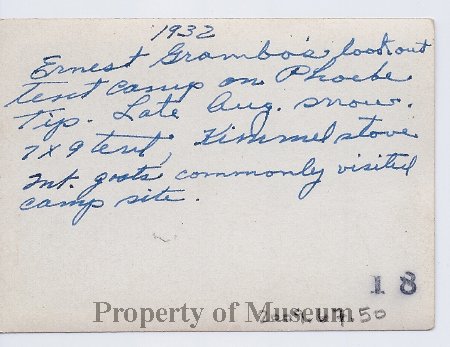 1932
Ernest Grambo's lookout
tent camp on Phoebe
Tip. Late Aug. snow.
7x9 tent, Kimmel stove
Mt. goats commonly visited
camp site.
18
Property of Museum
50